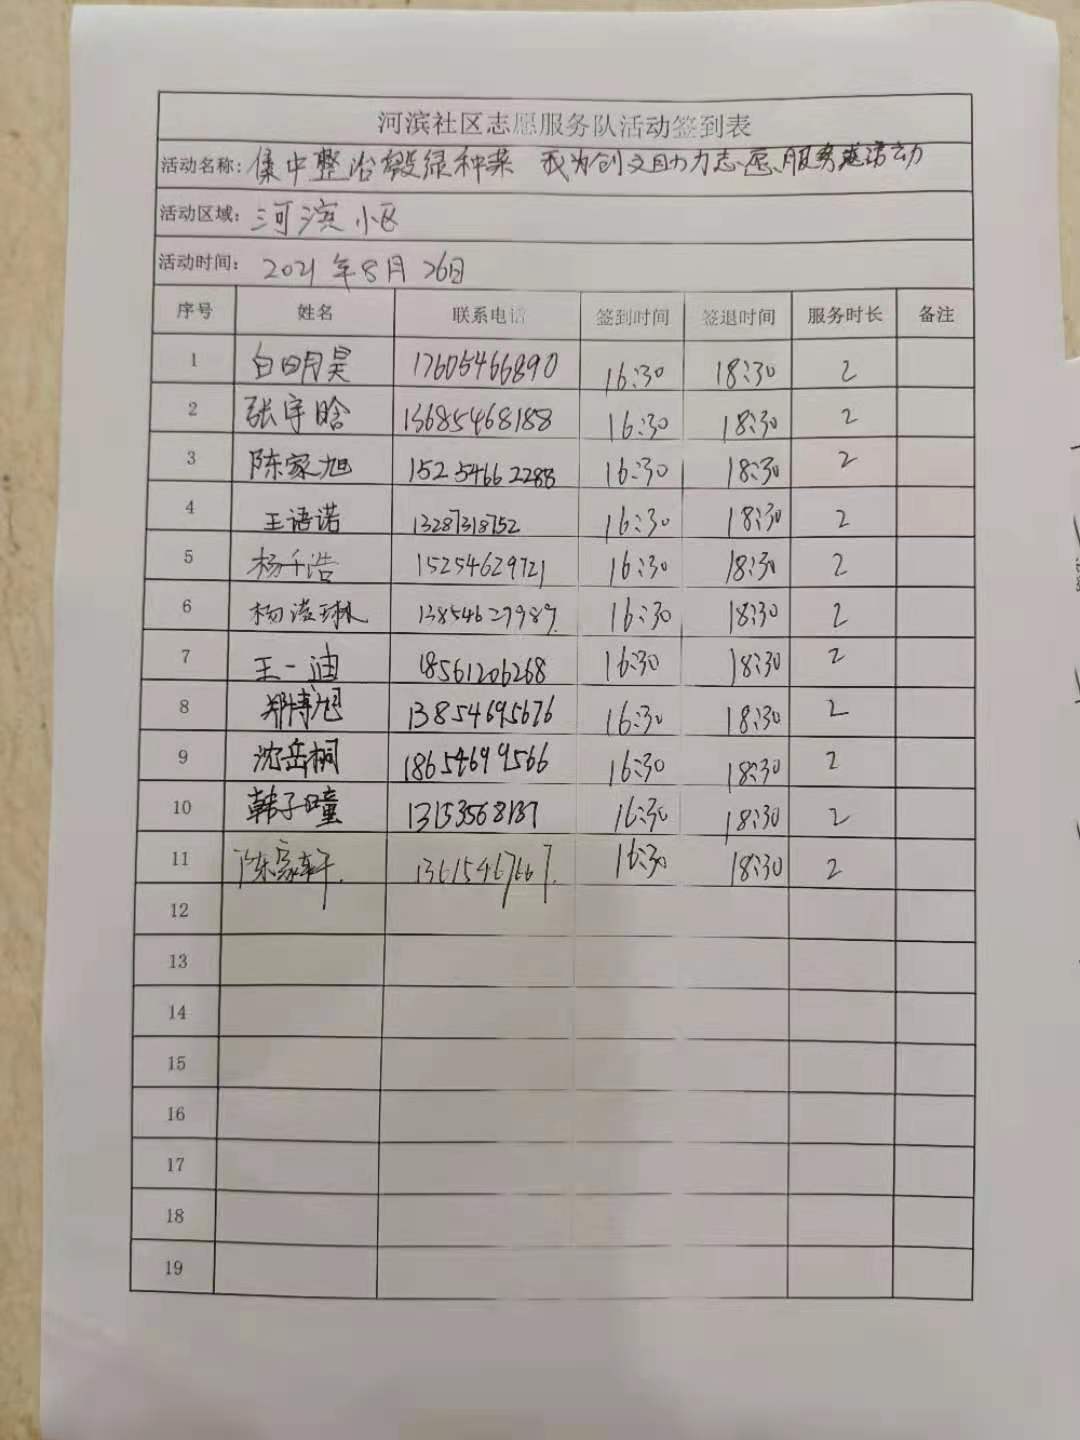 河滨社区志愿服务队活动签到表
活动名称: 集中整治毁绿种菜 我为创文助力志愿服务活动
活动区域: 河滨小区
活动时间: 2021年8月26日
序号 姓名 联系电话 签到时间 签退时间 服务时长 备注
1 白明昊 17605466890 16:30 18:30 2
2 张宇晗 13685468188 16:30 18:30 2
3 陈家旭 15254662288 16:30 18:30 2
4 王语诺 13287318752 16:30 18:30 2
5 杨千浩 15254629721 16:30 18:30 2
6 杨淩琳 13854627989. 16:30 18:30 2
7 王一迪 18561206268 16:30 18:30 2
8 郑博旭 13854695676 16:30 18:30 2
9 沈岳桐 18654699566 16:30 18:30 2
10 韩子瞳 13153568137 16:30 18:30 2
11 陈家轩. 16:30 18:30 2
12
13
14
15
16
17
18
19